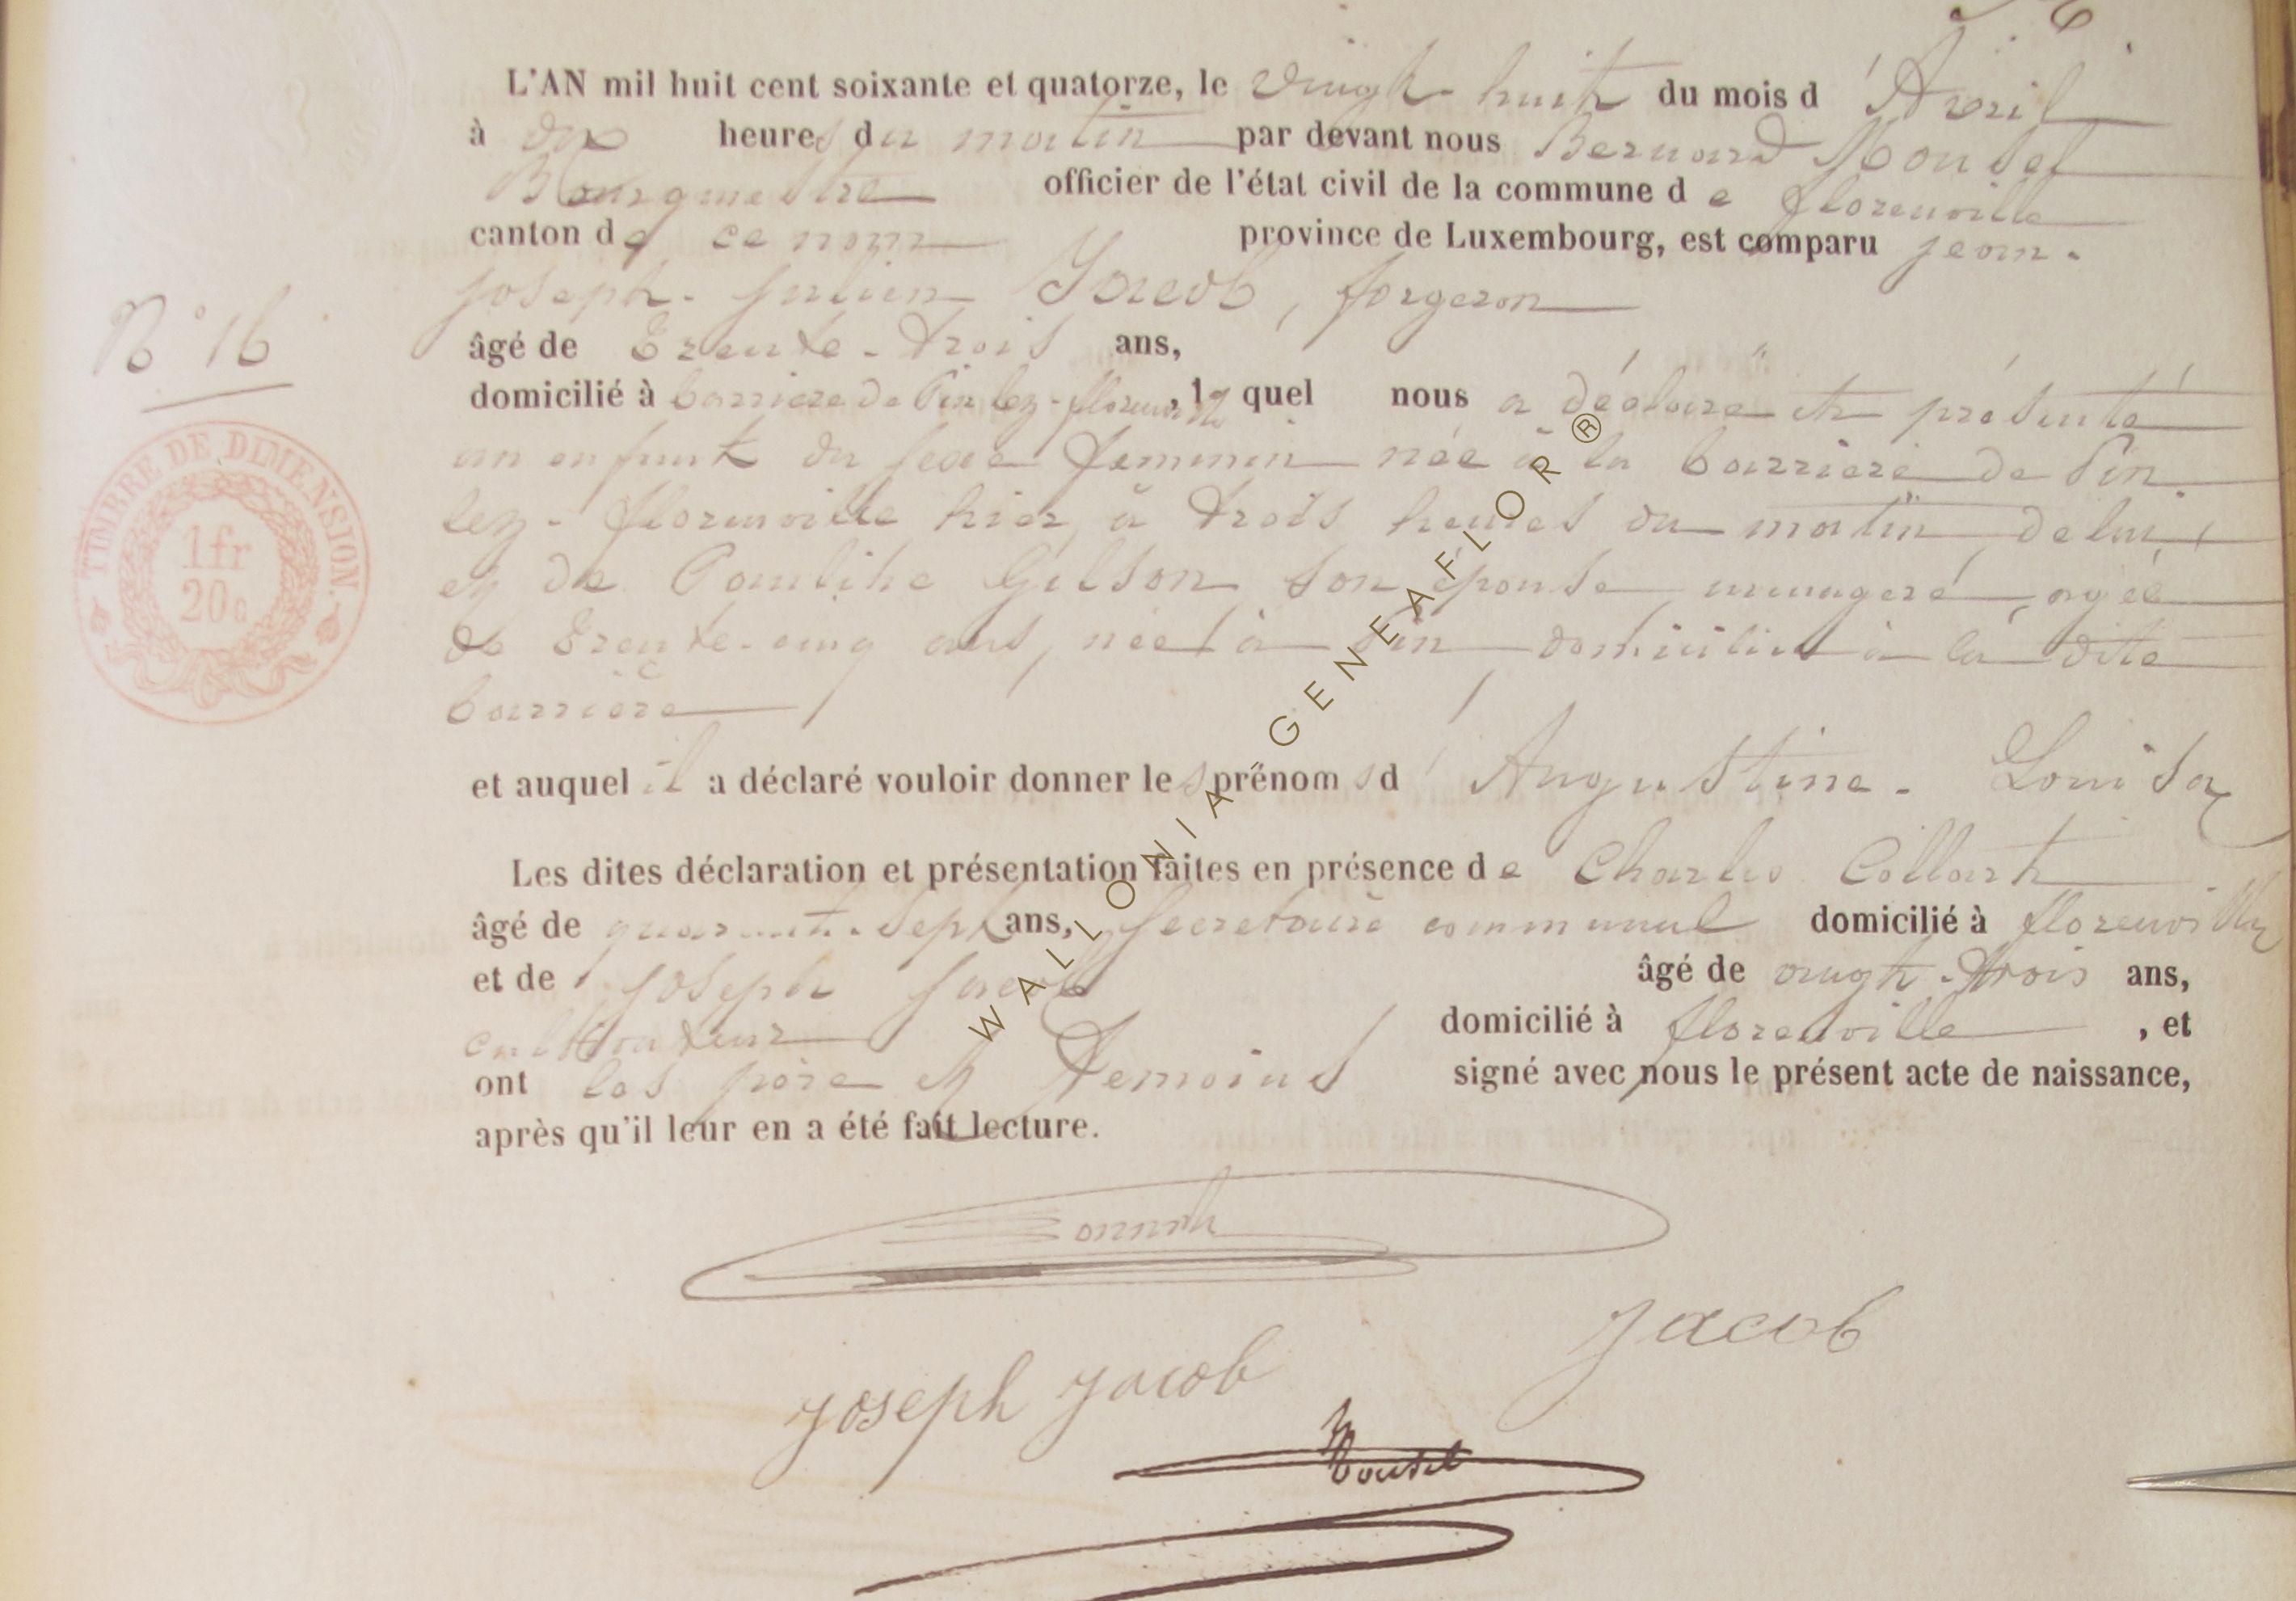 L'AN mil huit cent soixante et quatorze, le vingt huit du mois d'Avril
à dix heures du matin par devant nous Bernard Housel
Bourgmestre officier de l'état civil de la commune de florenville
canton de ce nom province de Luxembourg, est comparu jean-
joseph-julien Jacob, forgeron
N° 16
âgé de trente-trois ans,
domicilié à barriere de Pin lez-florenville, lequel nous a déclaré et présenté
un enfant du sexe feminin née à la barriere de Pin
lez-florenville hier à trois heures du matin, de lui,
et de Pauline Gilson son épouse, menagere, agée
de trente-cinq ans, née à Pin domiciliés à la dite
barriere
et auquel il a déclaré vouloir donner les prénoms d'Augustine-Louisa
Les dites déclaration et présentation faites en présence de Charles Collart
âgé de quarante-sept ans, secretaire communal domicilié à florenville
et de joseph jacob âgé de vingt-trois ans,
cultivateur domicilié à florenville, et
ont les père et temoins signé avec nous le présent acte de naissance,
après qu'il leur en a été fait lecture.
TIMBRE DE DIMENSION.
1fr
20c
Jacob
Joseph Jacob
WALLONIA GENEAFLOR®